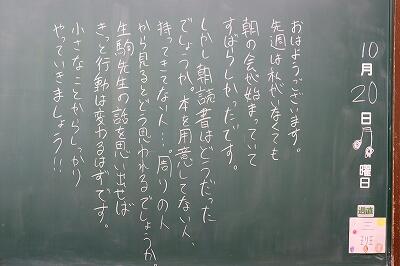 10月20日 曜日
週直
おはようございます。
先週は私がいなくても
朝の会が始まっていて
すばらしかったです。
しかし朝読書はどうだった
でしょうか。本を用意してない人、
持ってきてない人…。周りの人
から見るとどう思われるでしょうか。
生駒先生の話を思い出せば
きっと行動は変わるはずです。
小さなことからしっかり
やっていきましょう!!